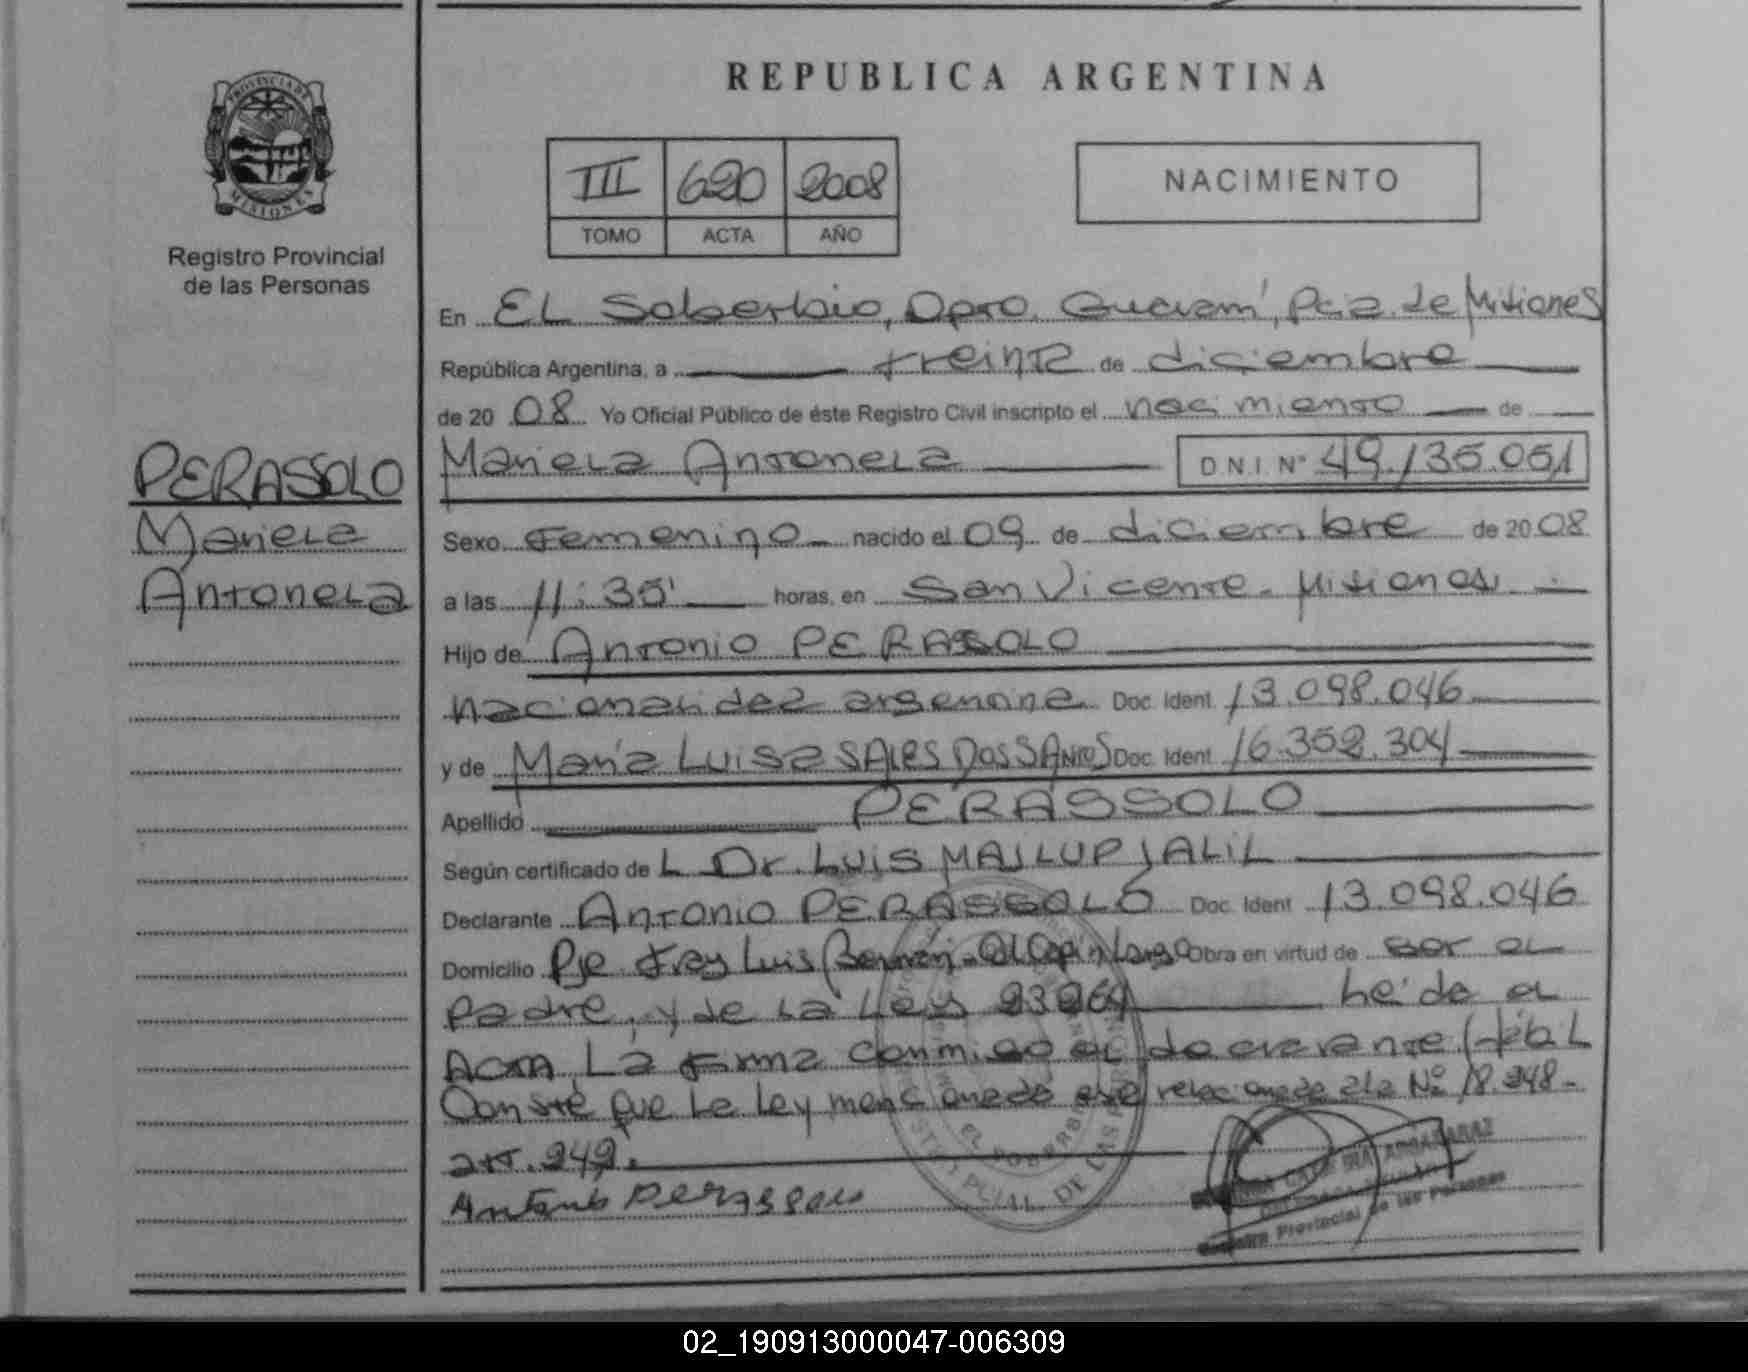 REPUBLICA ARGENTINA
PROVINCIA DE
MISIONES
Registro Provincial
de las Personas
III 620 2008
TOMO ACTA AÑO
NACIMIENTO
En EL Soberbio, Dpto. Guaraní, Pcia. de Misiones
República Argentina, a treinta de diciembre
de 2008 Yo Oficial Público de éste Registro Civil inscripto el nacimiento de
PERASSOLO
Mariela
Antonela
Mariela Antonela D.N.I. Nº 49.135.051
Sexo Femenino nacido el 09 de diciembre de 2008
a las 11:35' horas, en San Vicente - Misiones.
Hijo de Antonio PERASSOLO
nacionalidad argentina Doc. Ident. 13.098.046
y de María Luisa SALES DOS SANTOS Doc. Ident. 16.352.304
Apellido PERASSOLO
Según certificado de L Dr. LUIS JALIL
Declarante Antonio PERASSOLO Doc. Ident. 13.098.046
Domicilio Pje. Fray Luis Obra en virtud de ser el
padre, y de la Ley 23264 Leída el
Acta La firma conmigo el declarante
Conste que la Ley mencionada relacionada a la Nº 18.248-
art. 242.
Antonio Perassolo
Provincial de las Personas
02_190913000047-006309